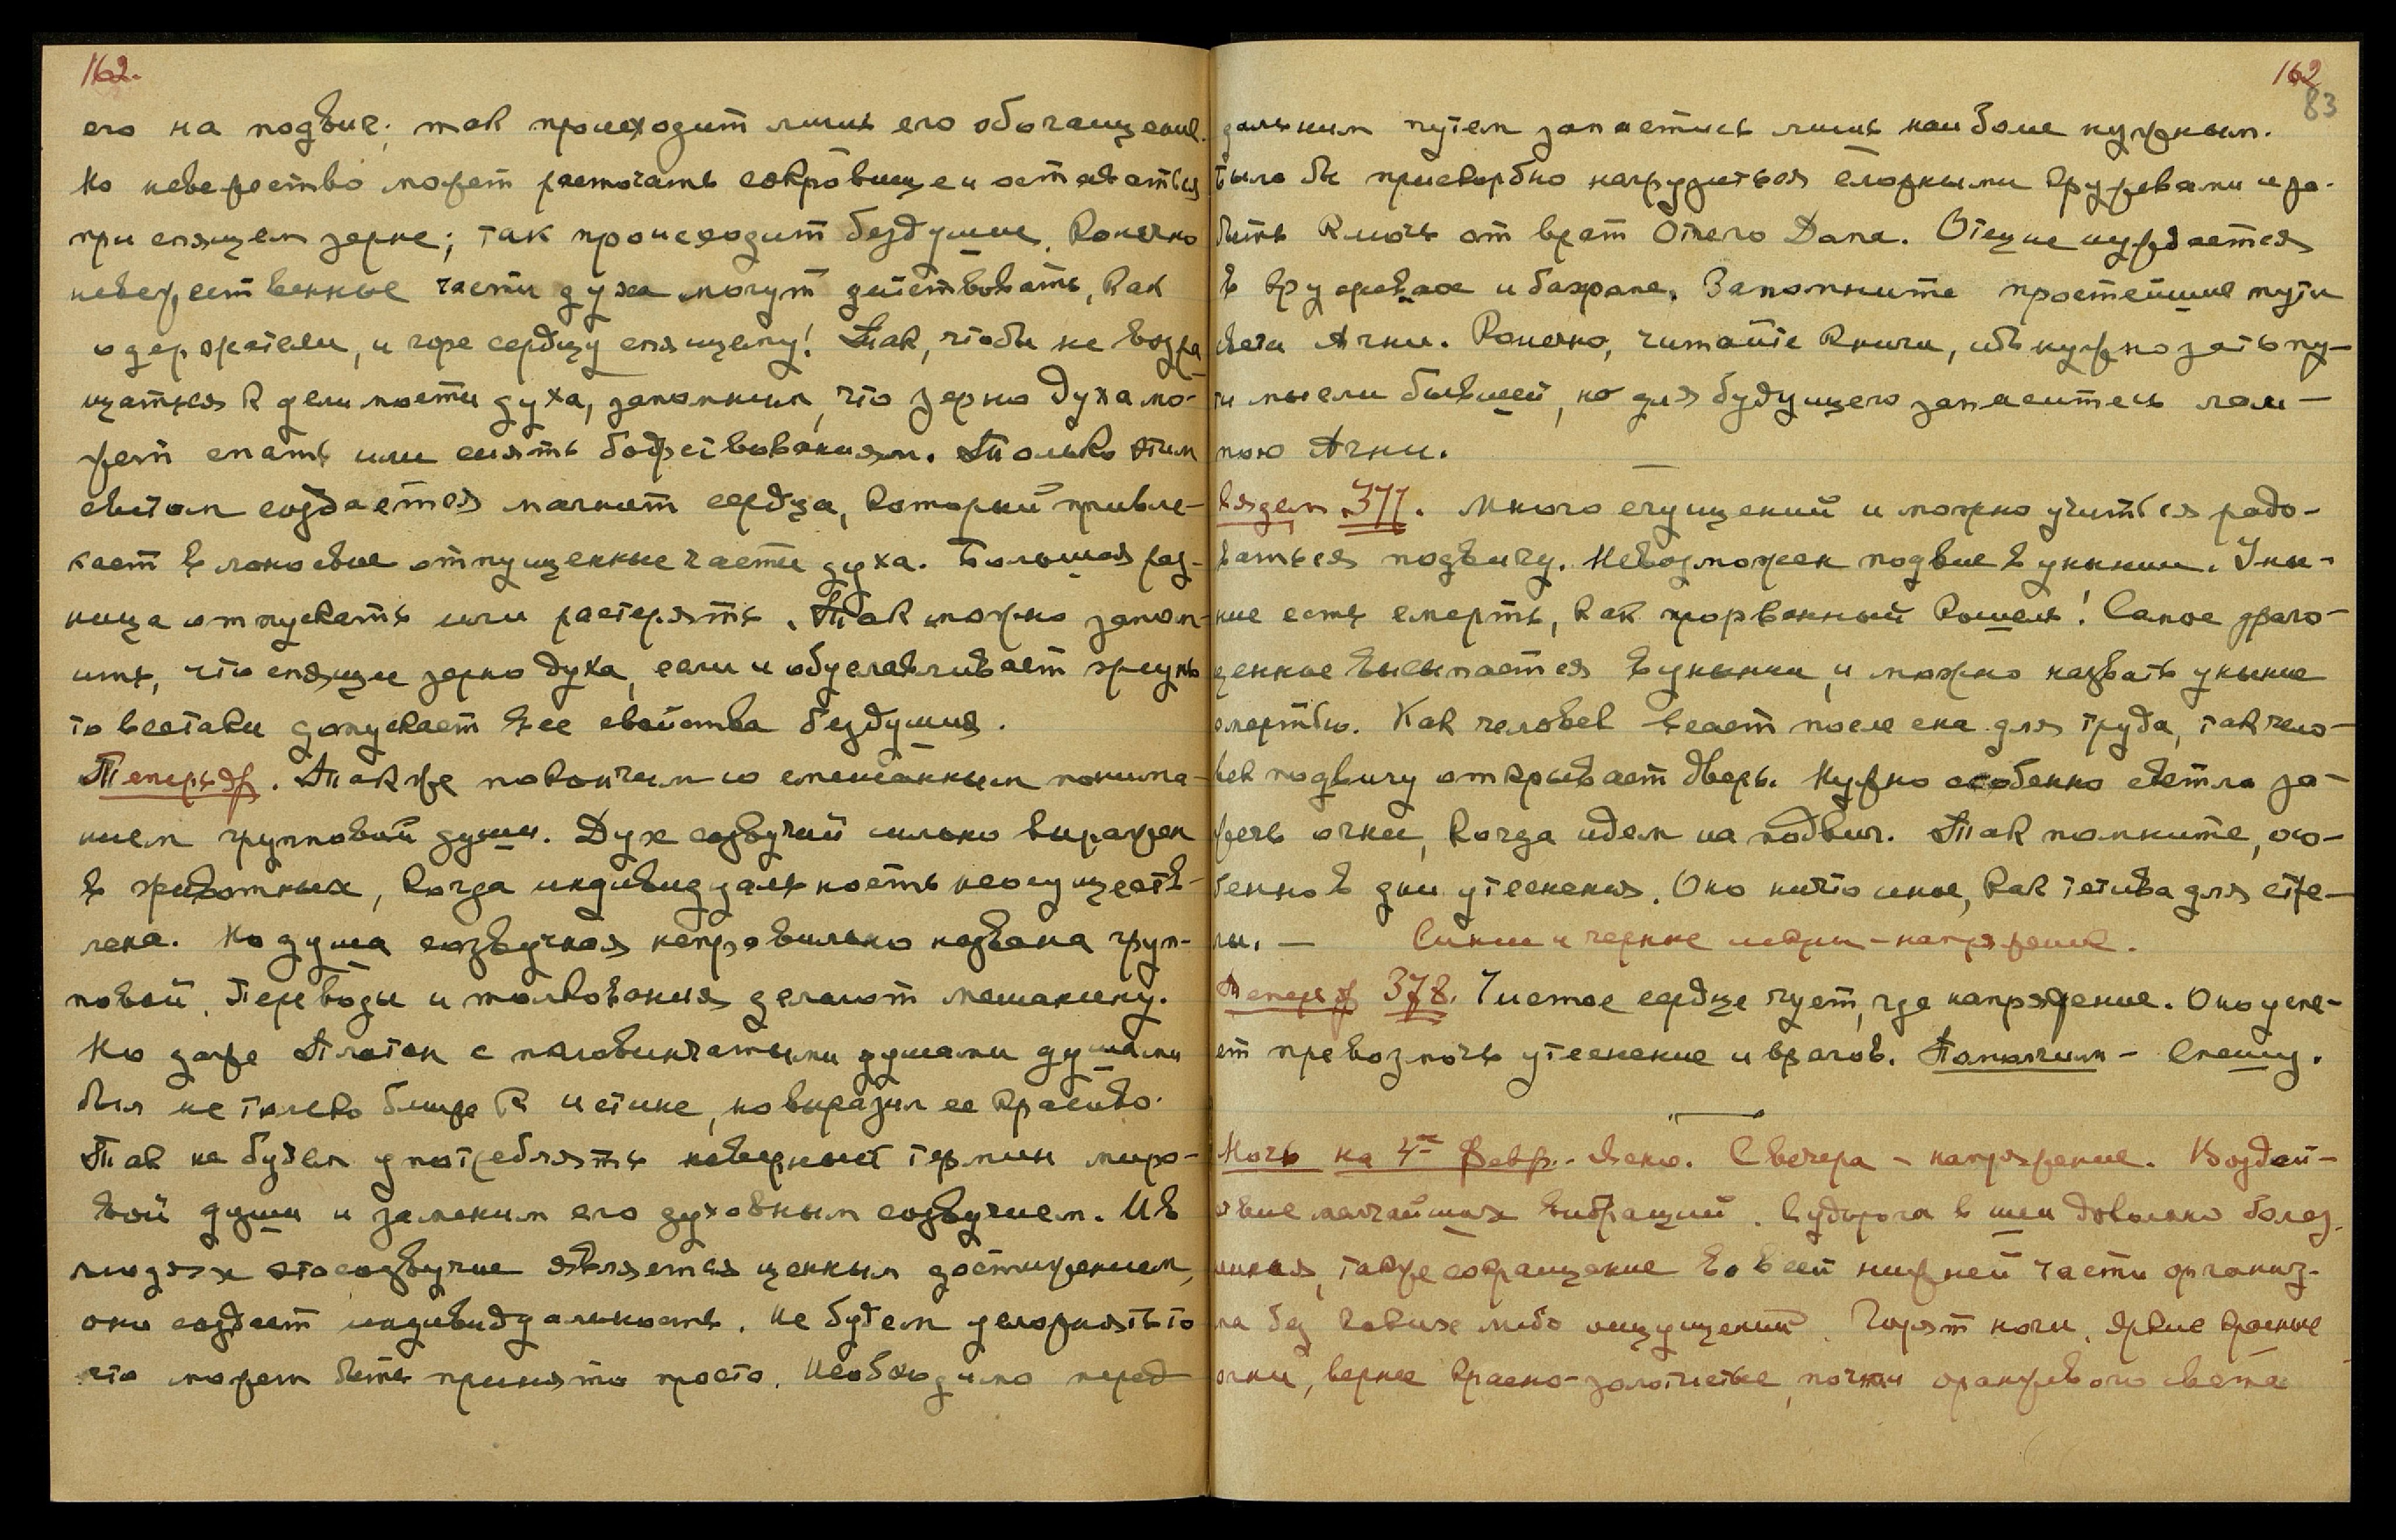 162.
его на подвиг; так происходит лишь его обогащение.
Но невежество может расточать сокровище и оставаться
при спящем зерне; так происходит бездушие. Конечно
невежественные части духа могут действовать, как
одержатели, и горе сердцу спящему! Так, чтобы не возвра-
щаться к делимости духа, запомним, что зерно духа мо-
жет спать или сиять бодрствованием. Только этим
светом создается магнит сердца, который привле-
кает в лоно свое отпущенные части духа. Большая раз-
ница отпускать или растерять. Так можно запом-
нить, что спящее зерно духа, если и обуславливает жизнь
то всетаки допускает все свойства бездушия.
Теперь др. Также покончим со смешанным понима-
нием групповой души. Дух созвучий сильно выражен
в животных, когда индивидуальность неосуществ-
лена. Но душа созвучная неправильно названа груп-
повой. Переводы и толкования делают мешанину.
Но даже Платон с половинчатыми душами душами
был не только ближе к истине, но выразил ее красиво.
Так не будем употреблять неверный термин миро-
вой души и заменим его духовным созвучием. И в
людях это созвучие является ценным достижением,
оно создает индивидуальность. Не будем усложнять то
что может быть принято просто. Необходимо перед
162
83
дальним путем запастись лишь наиболее нужным.
Было бы прискорбно нагрузиться сложными кружевами и за-
быть ключ от врат Отчего Дома. Отец не нуждается
в кружевах и бахроме. Запомните простейшие пути
света Агни. Конечно, читайте книги, ибо нужно знать пу-
ти мысли бывшей, но для будущего запаситесь лам-
пою Агни.
Вядем 377. Много сгущений и можно учиться радо-
ваться подвигу. Невозможен подвиг в унынии. Уны-
ние есть смерть, как прорванный кошель! Самое драго-
ценное высыпается в унынии, и можно назвать уныние
смертью. Как человек встает после сна для труда, так чело-
век подвигу открывает дверь. Нужно особенно светло за-
жечь огни, когда идем на подвиг. Так помните, осо-
бенно в дни утеснения. Оно ничто иное, как тетива для стре-
лы. — Синие и черные искры - напряжение.
Теперь др 378. Чистое сердце чует, где напряжение. Оно суме-
ет превозмочь утеснение и врагов. Помолчим - Спешу.
Ночь на 4-е Февр. - Ясно. С вечера - напряжение. Воздей-
ствие мягчайших вибраций. Судорога в шеи довольно болез-
ненная, также сокращение во всей нижней части организ-
ма без каких либо ощущений. Горят ноги. Яркие красные
огни, вернее красно-золотистые, почти оранжевого света